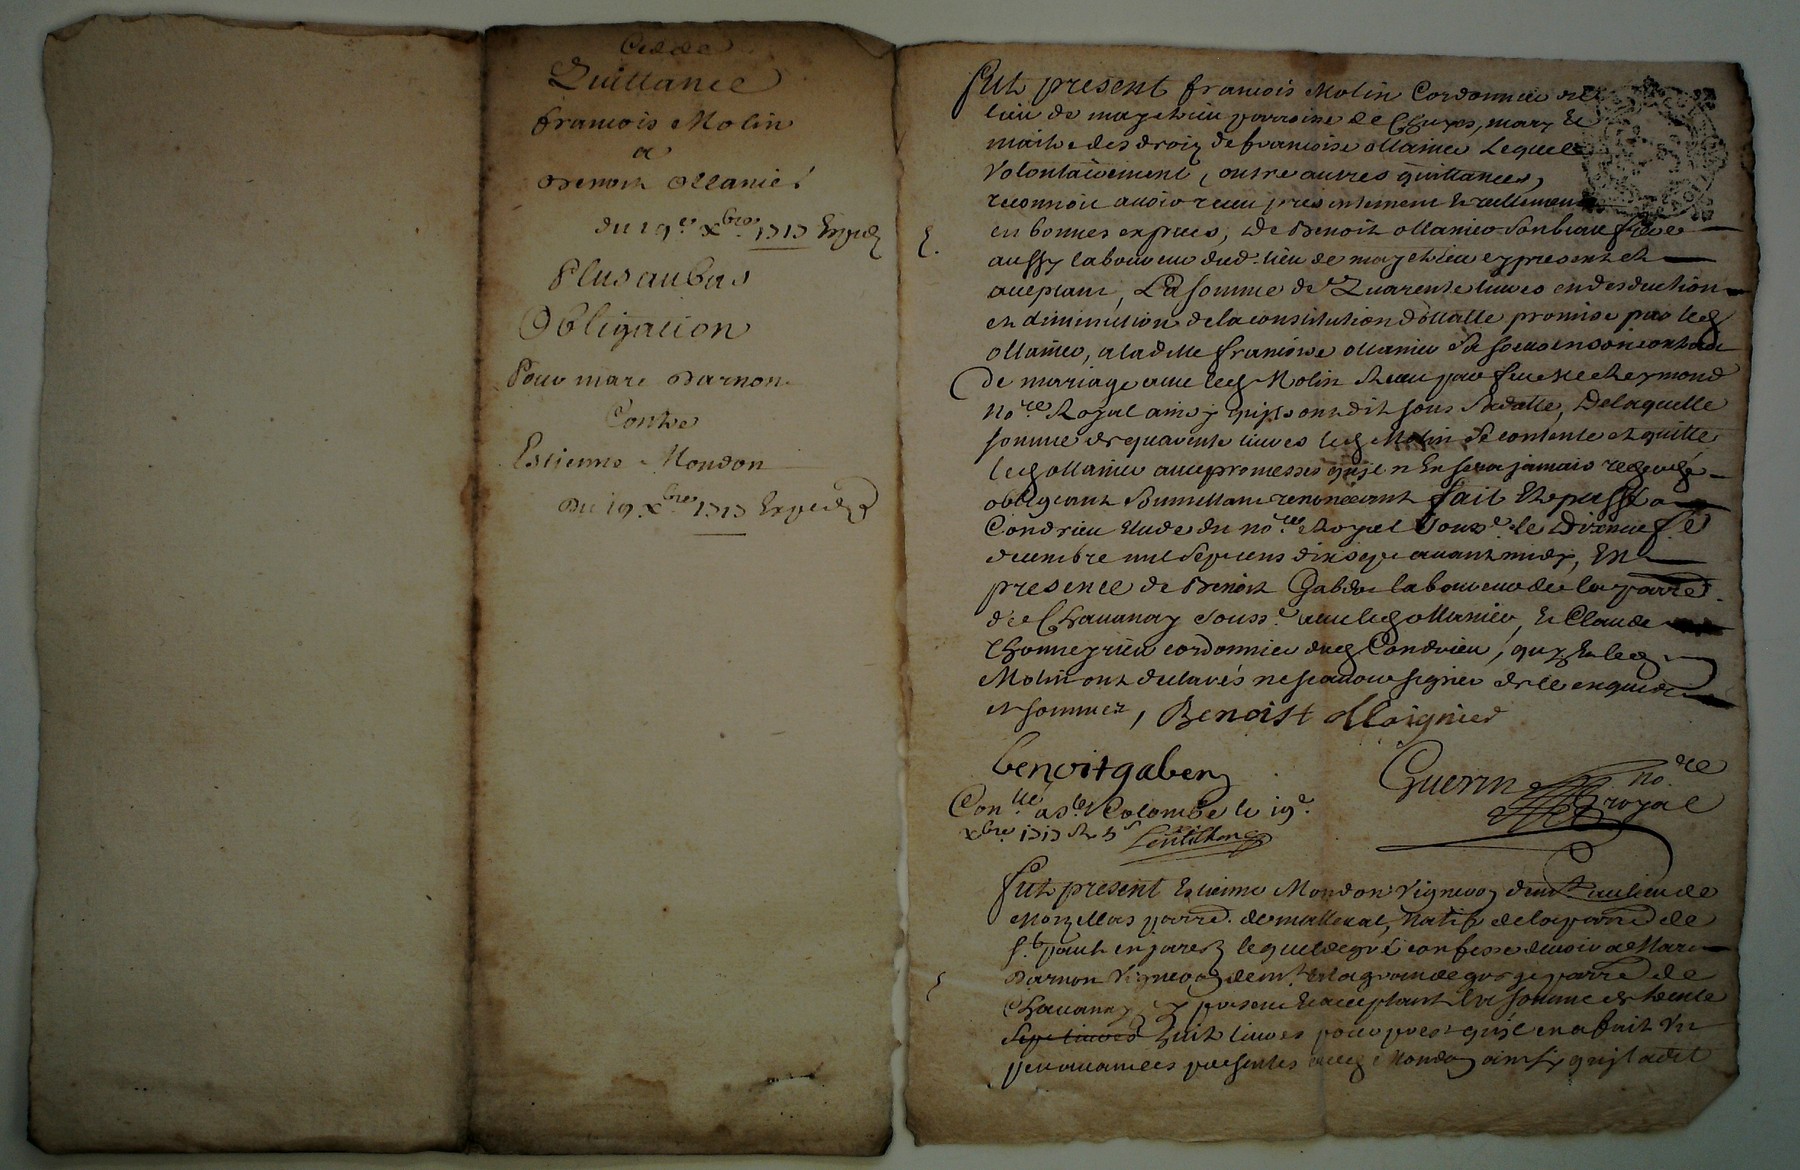 Cedde
Quittance
francois Molin
a
Benoit Ollanier
du 19e xbre 1717 Exped
Plus au bas
Obligation
Pour marc Darnon
Contre
Estienne Mondon
Du 19 xbre 1717 Exped
Fut present francois Molin Cordonnier de
lieu de mazetieu parroisse de Chuyes, mary Et
maitre des droiz de francoise ollanier Lequel
Volontairement, outre autres quittances,
reconnoit avoir receu presentement Et reellement
en bonnes especes, de Benoit ollanier son beau frere
aussy laboureur dud. lieu de mazetieu cy present et
acceptant, La somme de Quarente livres en desduction
et diminution de la constitution dottalle promise par led
ollanier, a ladite francoise ollanier Sa soeur en son contract
de mariage avec led Molin Receu par feu Me Reymond
nore Royal ainsy quils ont dit sous Sa datte, De laquelle
somme de quarente livres led Molin Se contente et quitte
led ollanier avec promesses quil n En sera jamais recherché
obligeant Soumettant renonceant fait Et passé a
Condrieu Etude du nore Royal souse. le Dixneufe
decembre mil Sept cens dix sept avant midy, En
presence de Benoit Gabet laboureur de la parre
de Chavanay souss.e avec led ollanier, Et Claude
Chonneyrieu cordonnier dud Condrieu, quy Et led
Molin ont declarés ne scavoir signer de ce enquis
et sommez, Benoist ollaignier
benoit gaber
Guerin nore
royal
Conlle a Ste Colombe le 19e
xbre 1717 R 5s
Fut present Estienne Mondon Vigneron demt au lieu de
Monzellas parre. de malleval, natif de la parre de
St paul en jarest lequel de gré confesse devoir a Marc
Darnon Vigneron demt. En la grande gorge parre de
Chavanay y present Et acceptant la somme de trente
Sept livres huit livres pour prest quil en a fait Un
peu avant ces presentes aud Mondon ainsy quil a dit